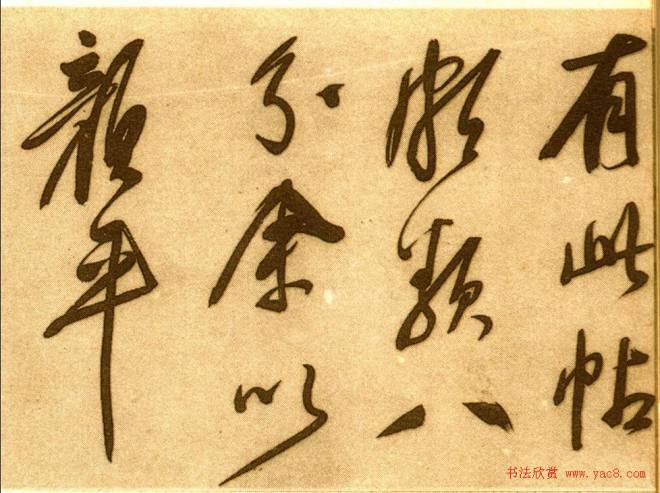 有此帖
頗類八
分余以
顏平
书法欣赏 www.yac8.com